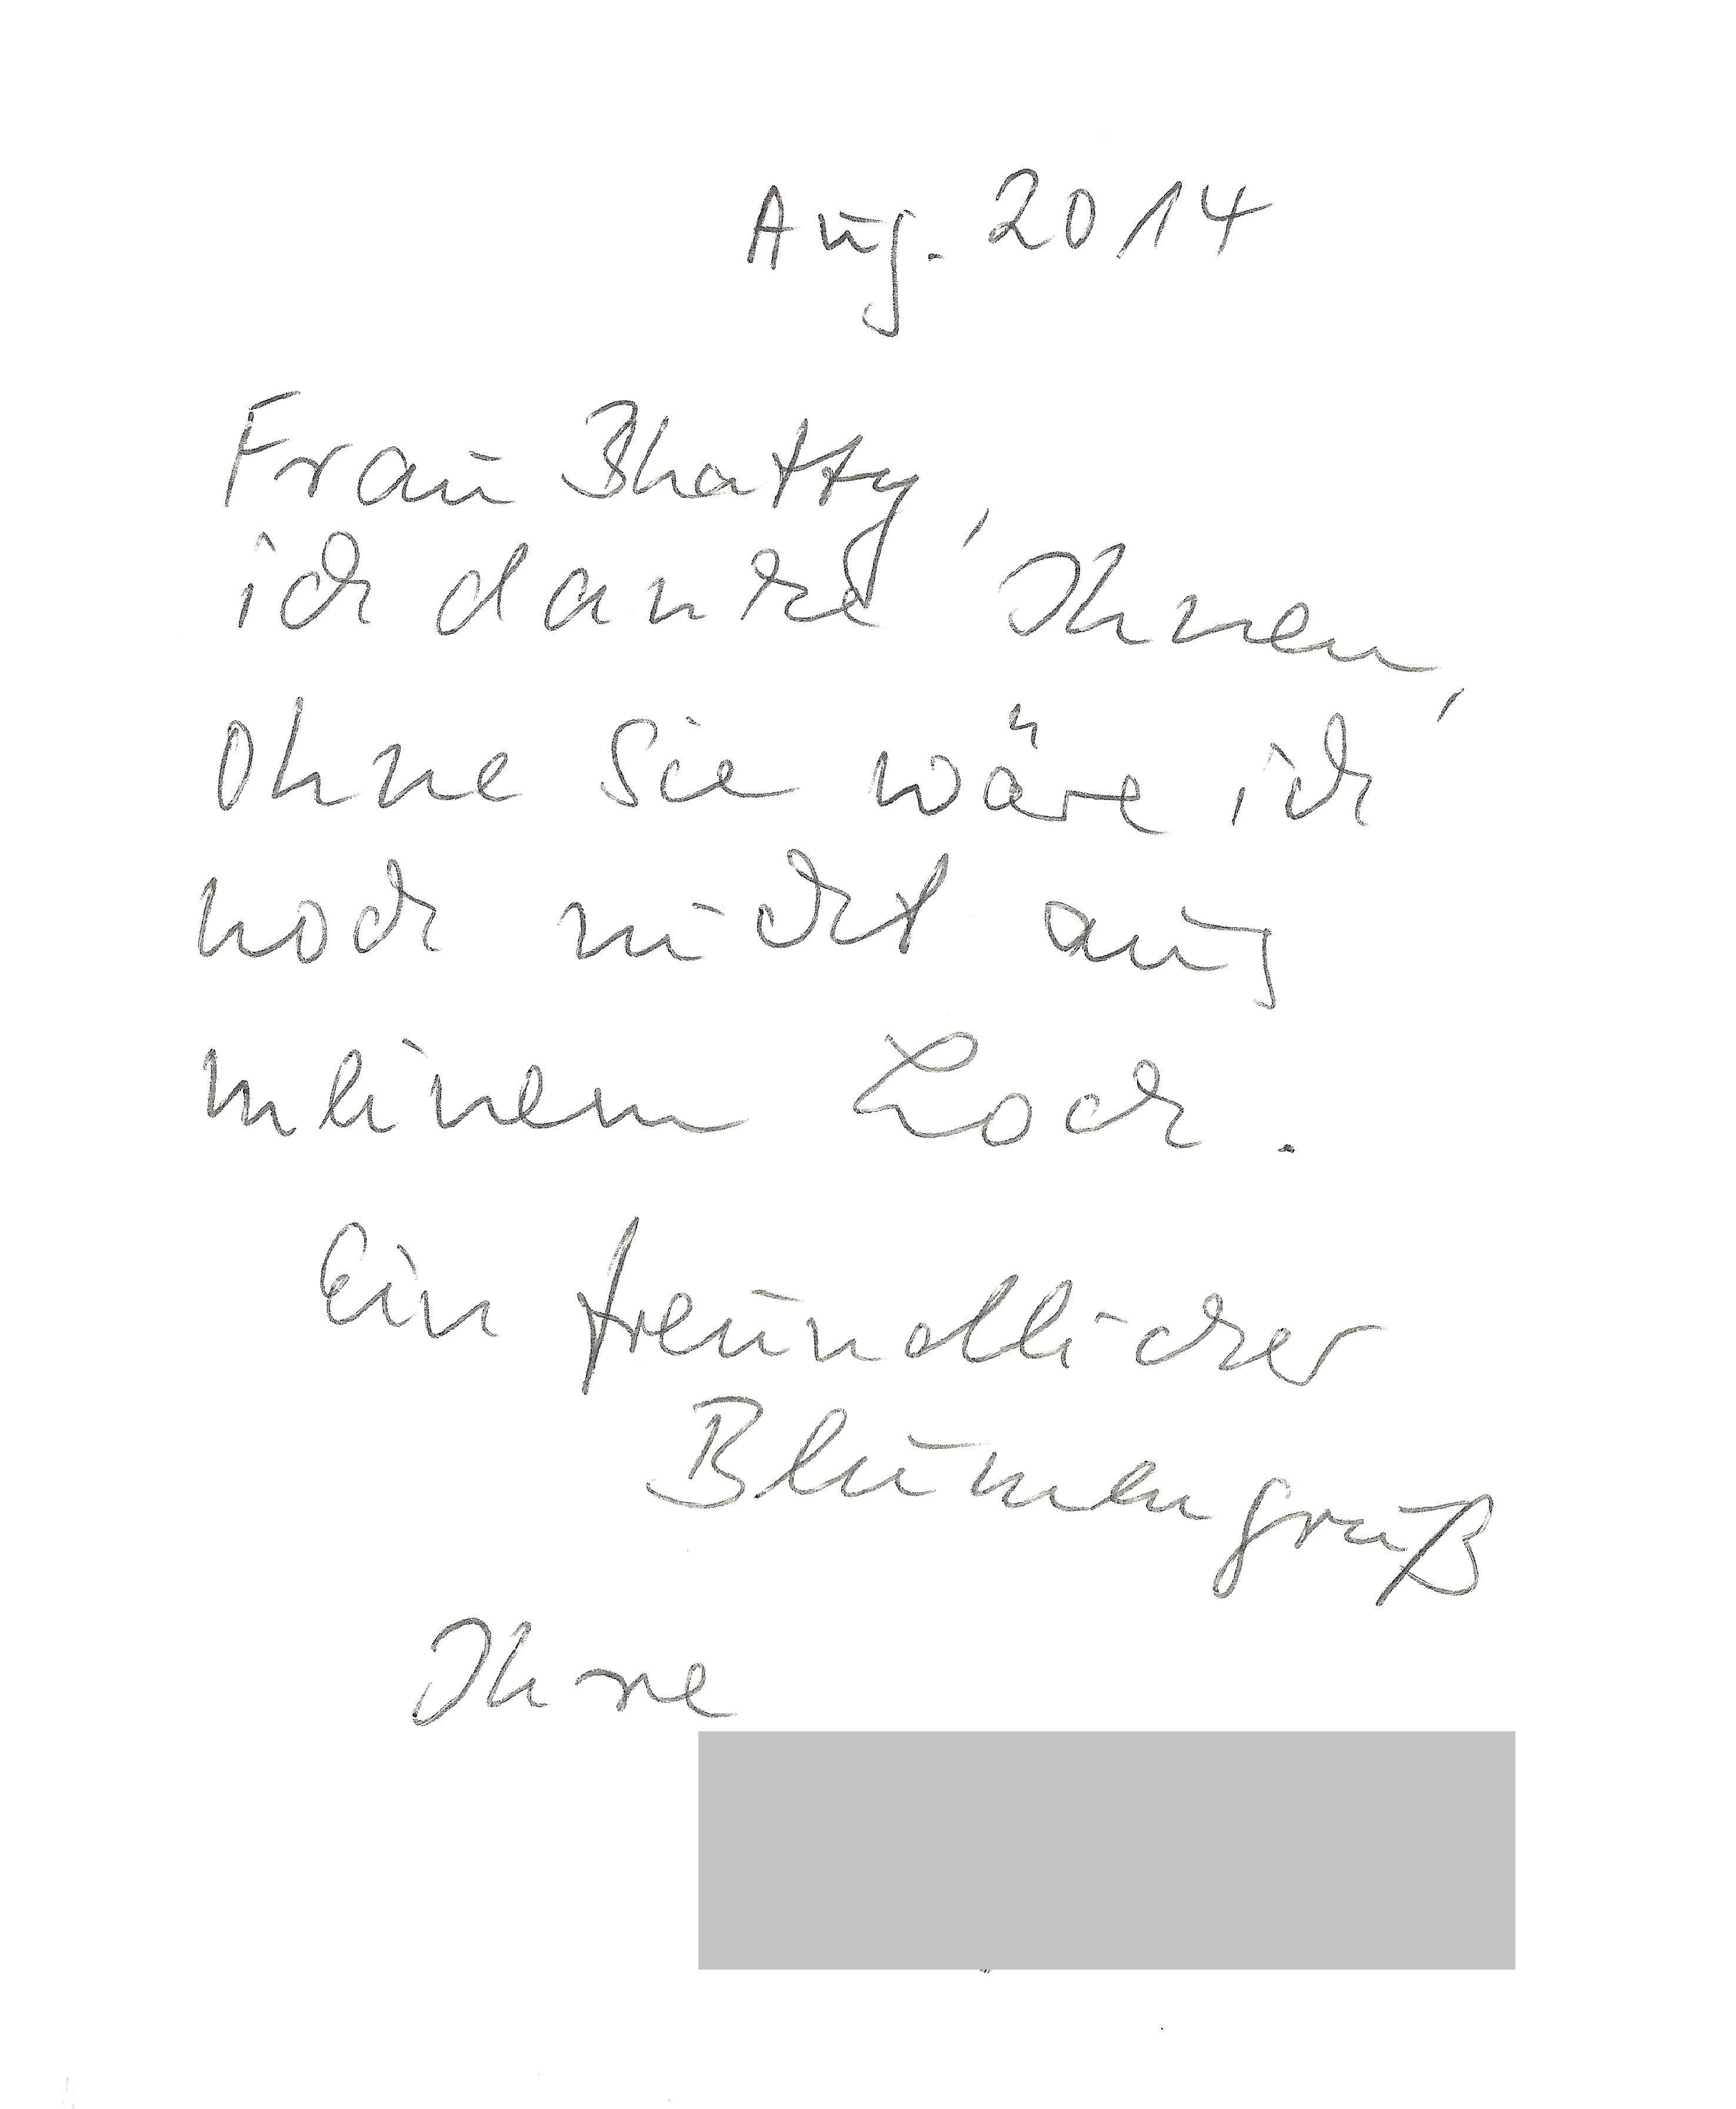 Aug. 2014
Frau Bhatty,
ich danke Ihnen,
ohne Sie wäre ich
noch nicht aus
meinem Loch.
Ein freundlicher
Blumengruß
Ihre